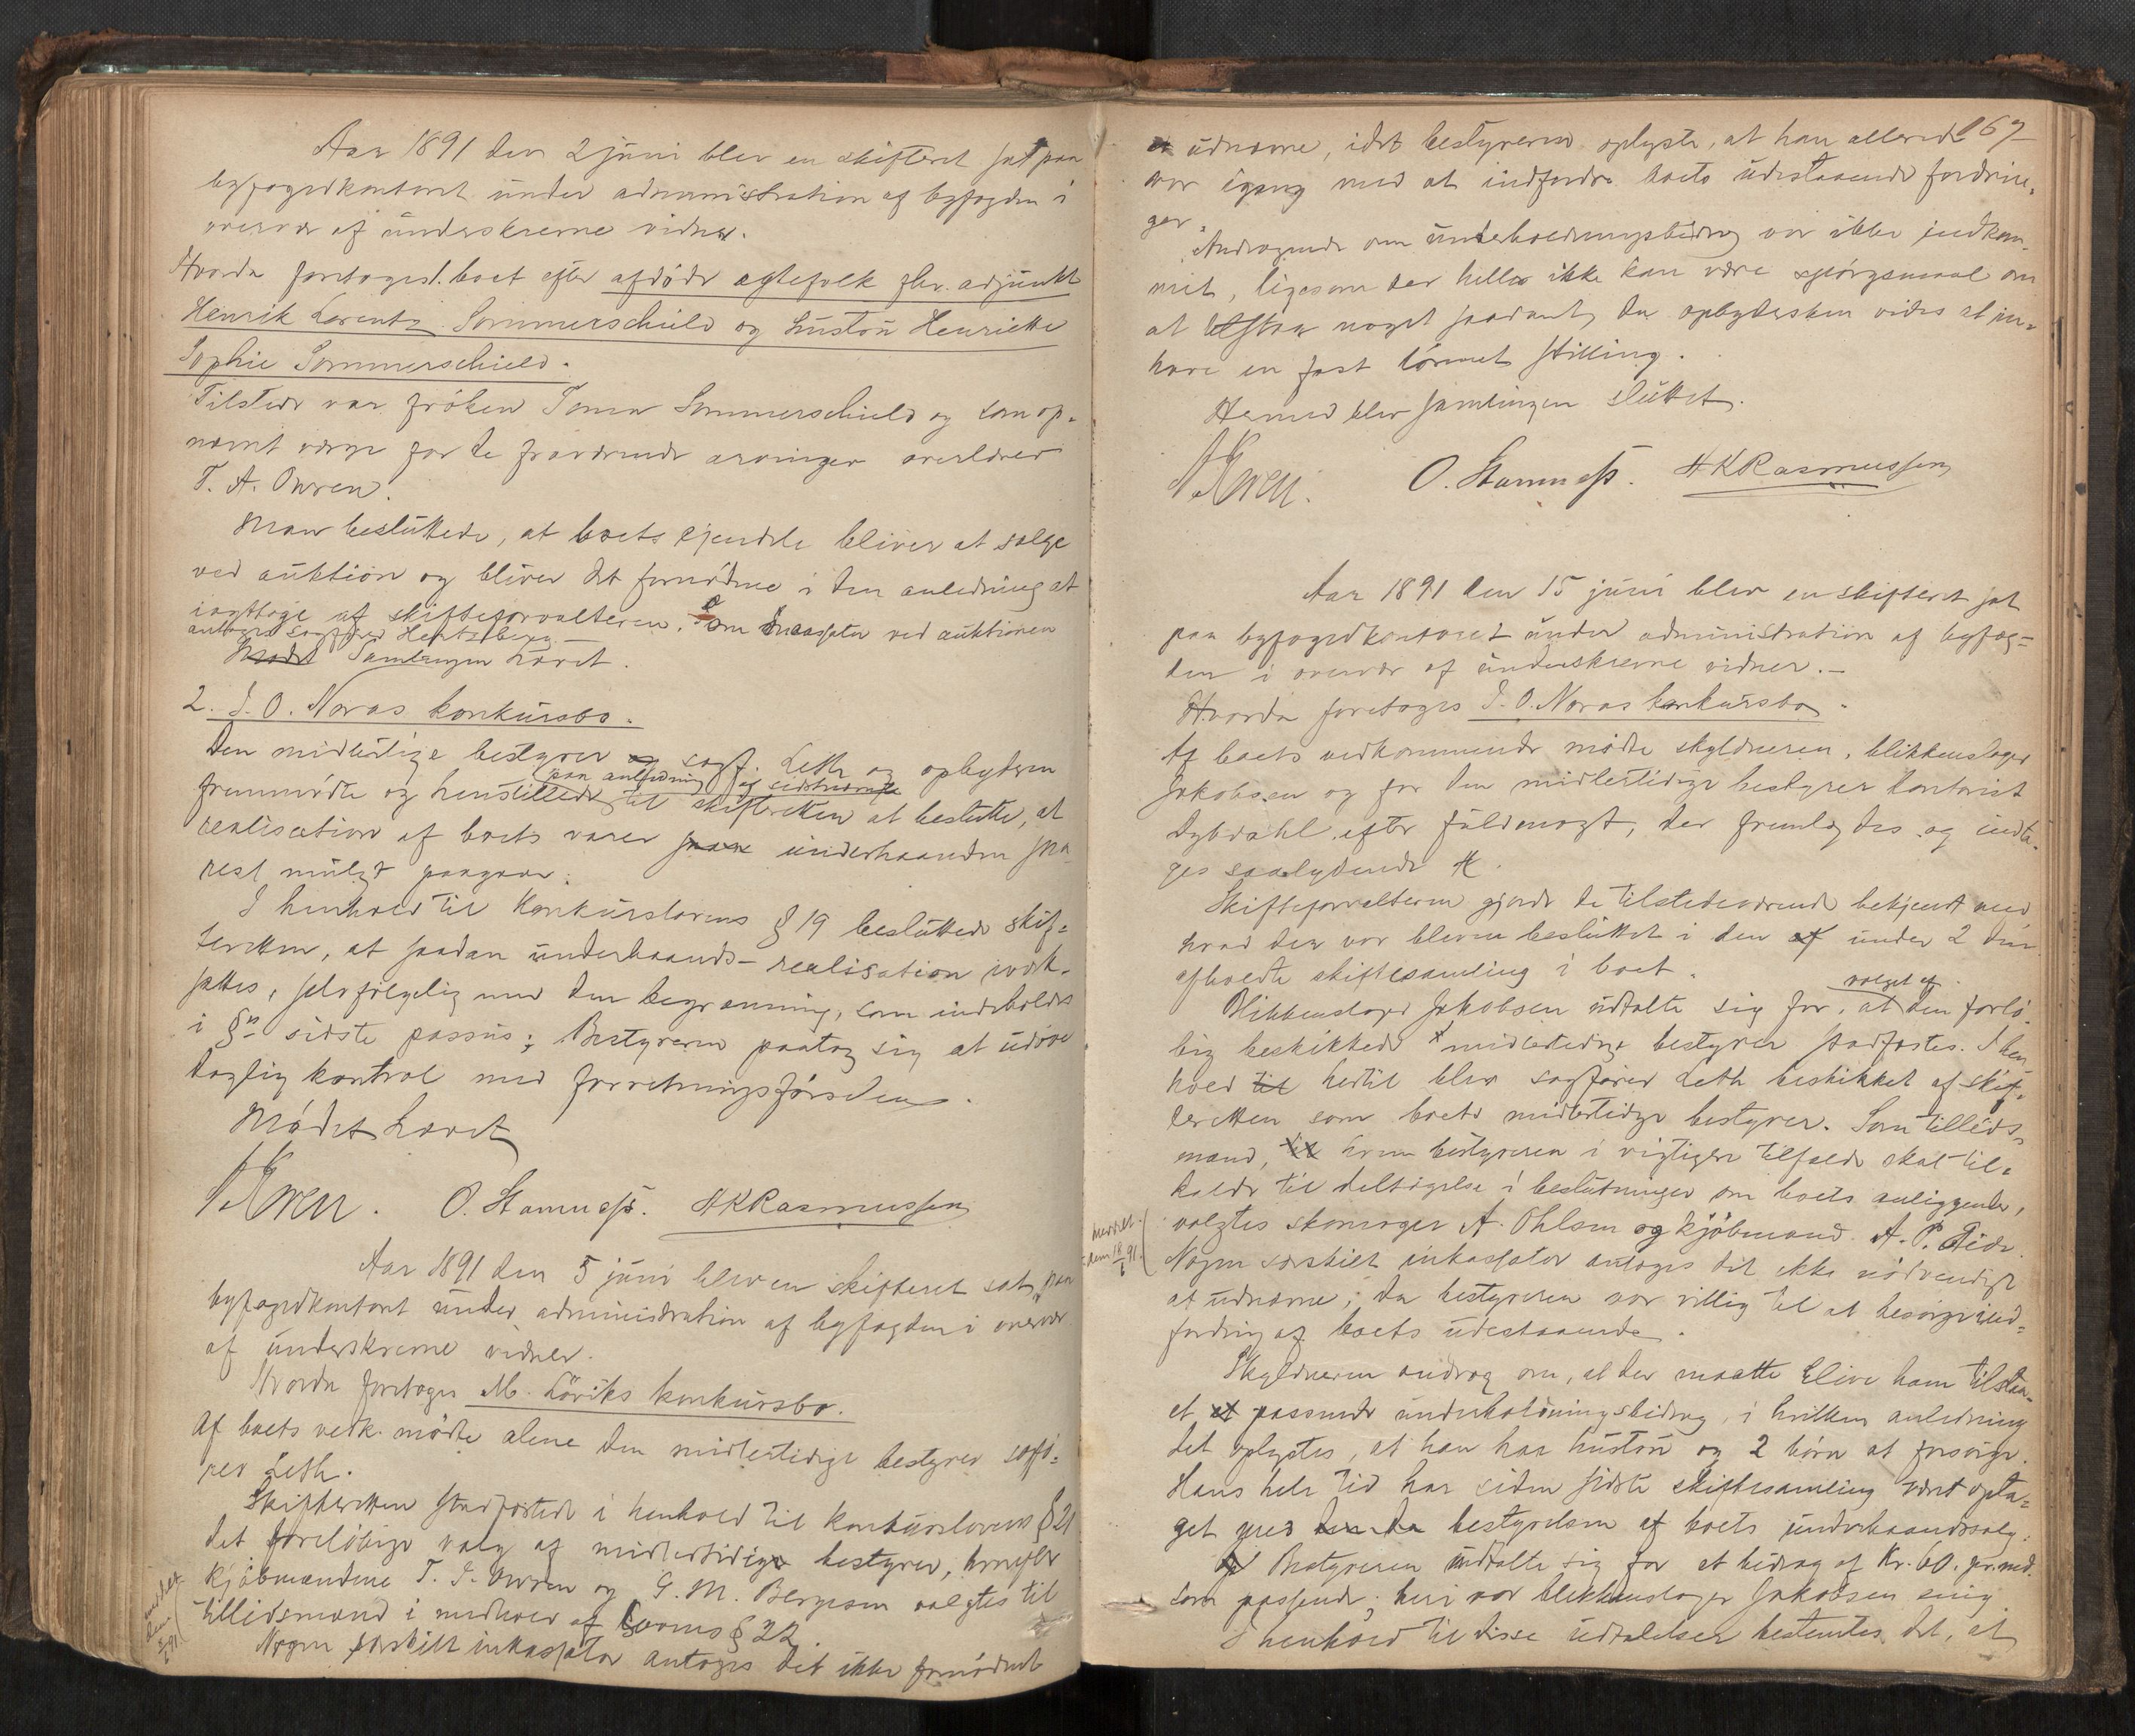 Aar 1891 den 2 juni blev en skifteret sat paa
byfogedkontoret under administration af byfogden i
overvær af underskrevne vidner.
Hvorda foretoges 1. boet efter afdöde ægtefolk fhv. adjunkt
Henrik Lorentz Sommerschield og hustru Henriette
Sophie Sommerschield.
Tilstede var fröken Sommerschield og som op-
nævnt værge for de fraværende arvinger overlærer
T. A. Owren.
Man besluttede, at boets eiendele bliver at sælge
ved auktion og bliver det fornödne i den anledning at
iagttage af skifteforvalteren. Som inkassator ved auktionen
antoges sagförer Hertzberg.
Mödet Samlingen hævet.
2. I. O. Noras konkursbo.
Den midlertidige bestyrer og sagf. Leth og opbyderen
paa anledning af sidstnævnte
fremmödte og henstillede til skifteretten at beslutte, at
realisation af boets varer underhaanden sna-
rest muligt paagaar.
I henhold til Konkurslovens § 19 besluttede skif-
teretten, at saadan underhaands-realisation iværk-
sættes, selvfölgelig med den begrænsning, som indeholdes
i §ns sidste passus; Bestyreren paatog sig at udöve
daglig kontrol med forretningsförselen.
Mödet hævet
O. Stamnes. H K Rasmussen
Aar 1891 den 5 juni blev en skifteret sat paa
byfogedkontoret under administration af byfogden i overvær
af underskrevne vidner.
Hvorda foretoges M. Löviks konkursbo.
Af boets vedk. mödte alene den midlertidige bestyrer sagfö-
rer Leth.
Skifteretten stadfæstede i henhold til konkurslovens § 21
det foreløbige valg af midlertidige bestyrer, hvorefter
kjöbmændene T. J. Owren og G. M. Bergesen valgtes til
tillidsmænd i medhold af lovens § 22.
Nogen særskilt inkassator antoges det ikke fornödent
167
at udnævne, idet bestyreren oplyste, at han allerede
var igang med at indfordre boets udestaaende fordrin-
ger.
Andragende om underholdningsbidrag var ikke indkom-
met, ligesom der heller ikke kan være spörgsmaal om
at tilstaa noget saadant, da opbyderen vides at inde-
have en fast lönnet stilling.
Hermed blev samlingen sluttet.
O. Stamnes. H K Rasmussen
Aar 1891 den 15 juni blev en skifteret sat
paa byfogedkontoret under administration af byfog-
den i overvær af underskrevne vidner.-
Hvorda foretoges I. O. Noras konkursbo.
Af boets vedkommende mödte skyldneren, blikkenslager
Jakobsen og for den midlertidige bestyrer kontorist
Dybdahl efter fuldmagt, der fremlagdes og indta-
ges saalydende
Skifteforvalteren gjorde de tilstedeværende bekjent med
hvad der var bleven besluttet i den af under 2 dns
afholdte skiftesamling i boet.
valget af
Blikkenslager Jakobsen udtalte sig for, at den forlö-
big beskikkede midlertidige bestyrer stadfæstes. I hen-
hold til hertil blev sagförer Leth beskikket af skif-
teretten som boets midlertidige bestyrer. Som tillids-
mænd, til hvem bestyreren i vigtigere tilfælde skal til-
kalde til deltagelse i beslutninger om boets anliggender,
valgtes skomager A. Ohlsen og kjöbmand A. P.
Nogen særskilt inkassator antoges det ikke nödvendigt
at udnævne, da bestyreren var villig til at besörge ind-
fordring af boets udestaaende.
Skyldneren androg om, at der maatte blive ham tilstaa-
et et passende underholdningsbidrag, i hvilken anledning
det oplystes, at han har hustru og 2 börn at forsörge.
Hans hele tid har siden sidste skiftesamling været opta-
get med bestyrelsen af boets underhaandssalg.
Bestyreren udtalte sig for et bidrag af Kr. 60. pr. md.
som passende; heri var blikkenslager Jakobsen enig.
I henhold til disse udtalelser bestemtes det, at